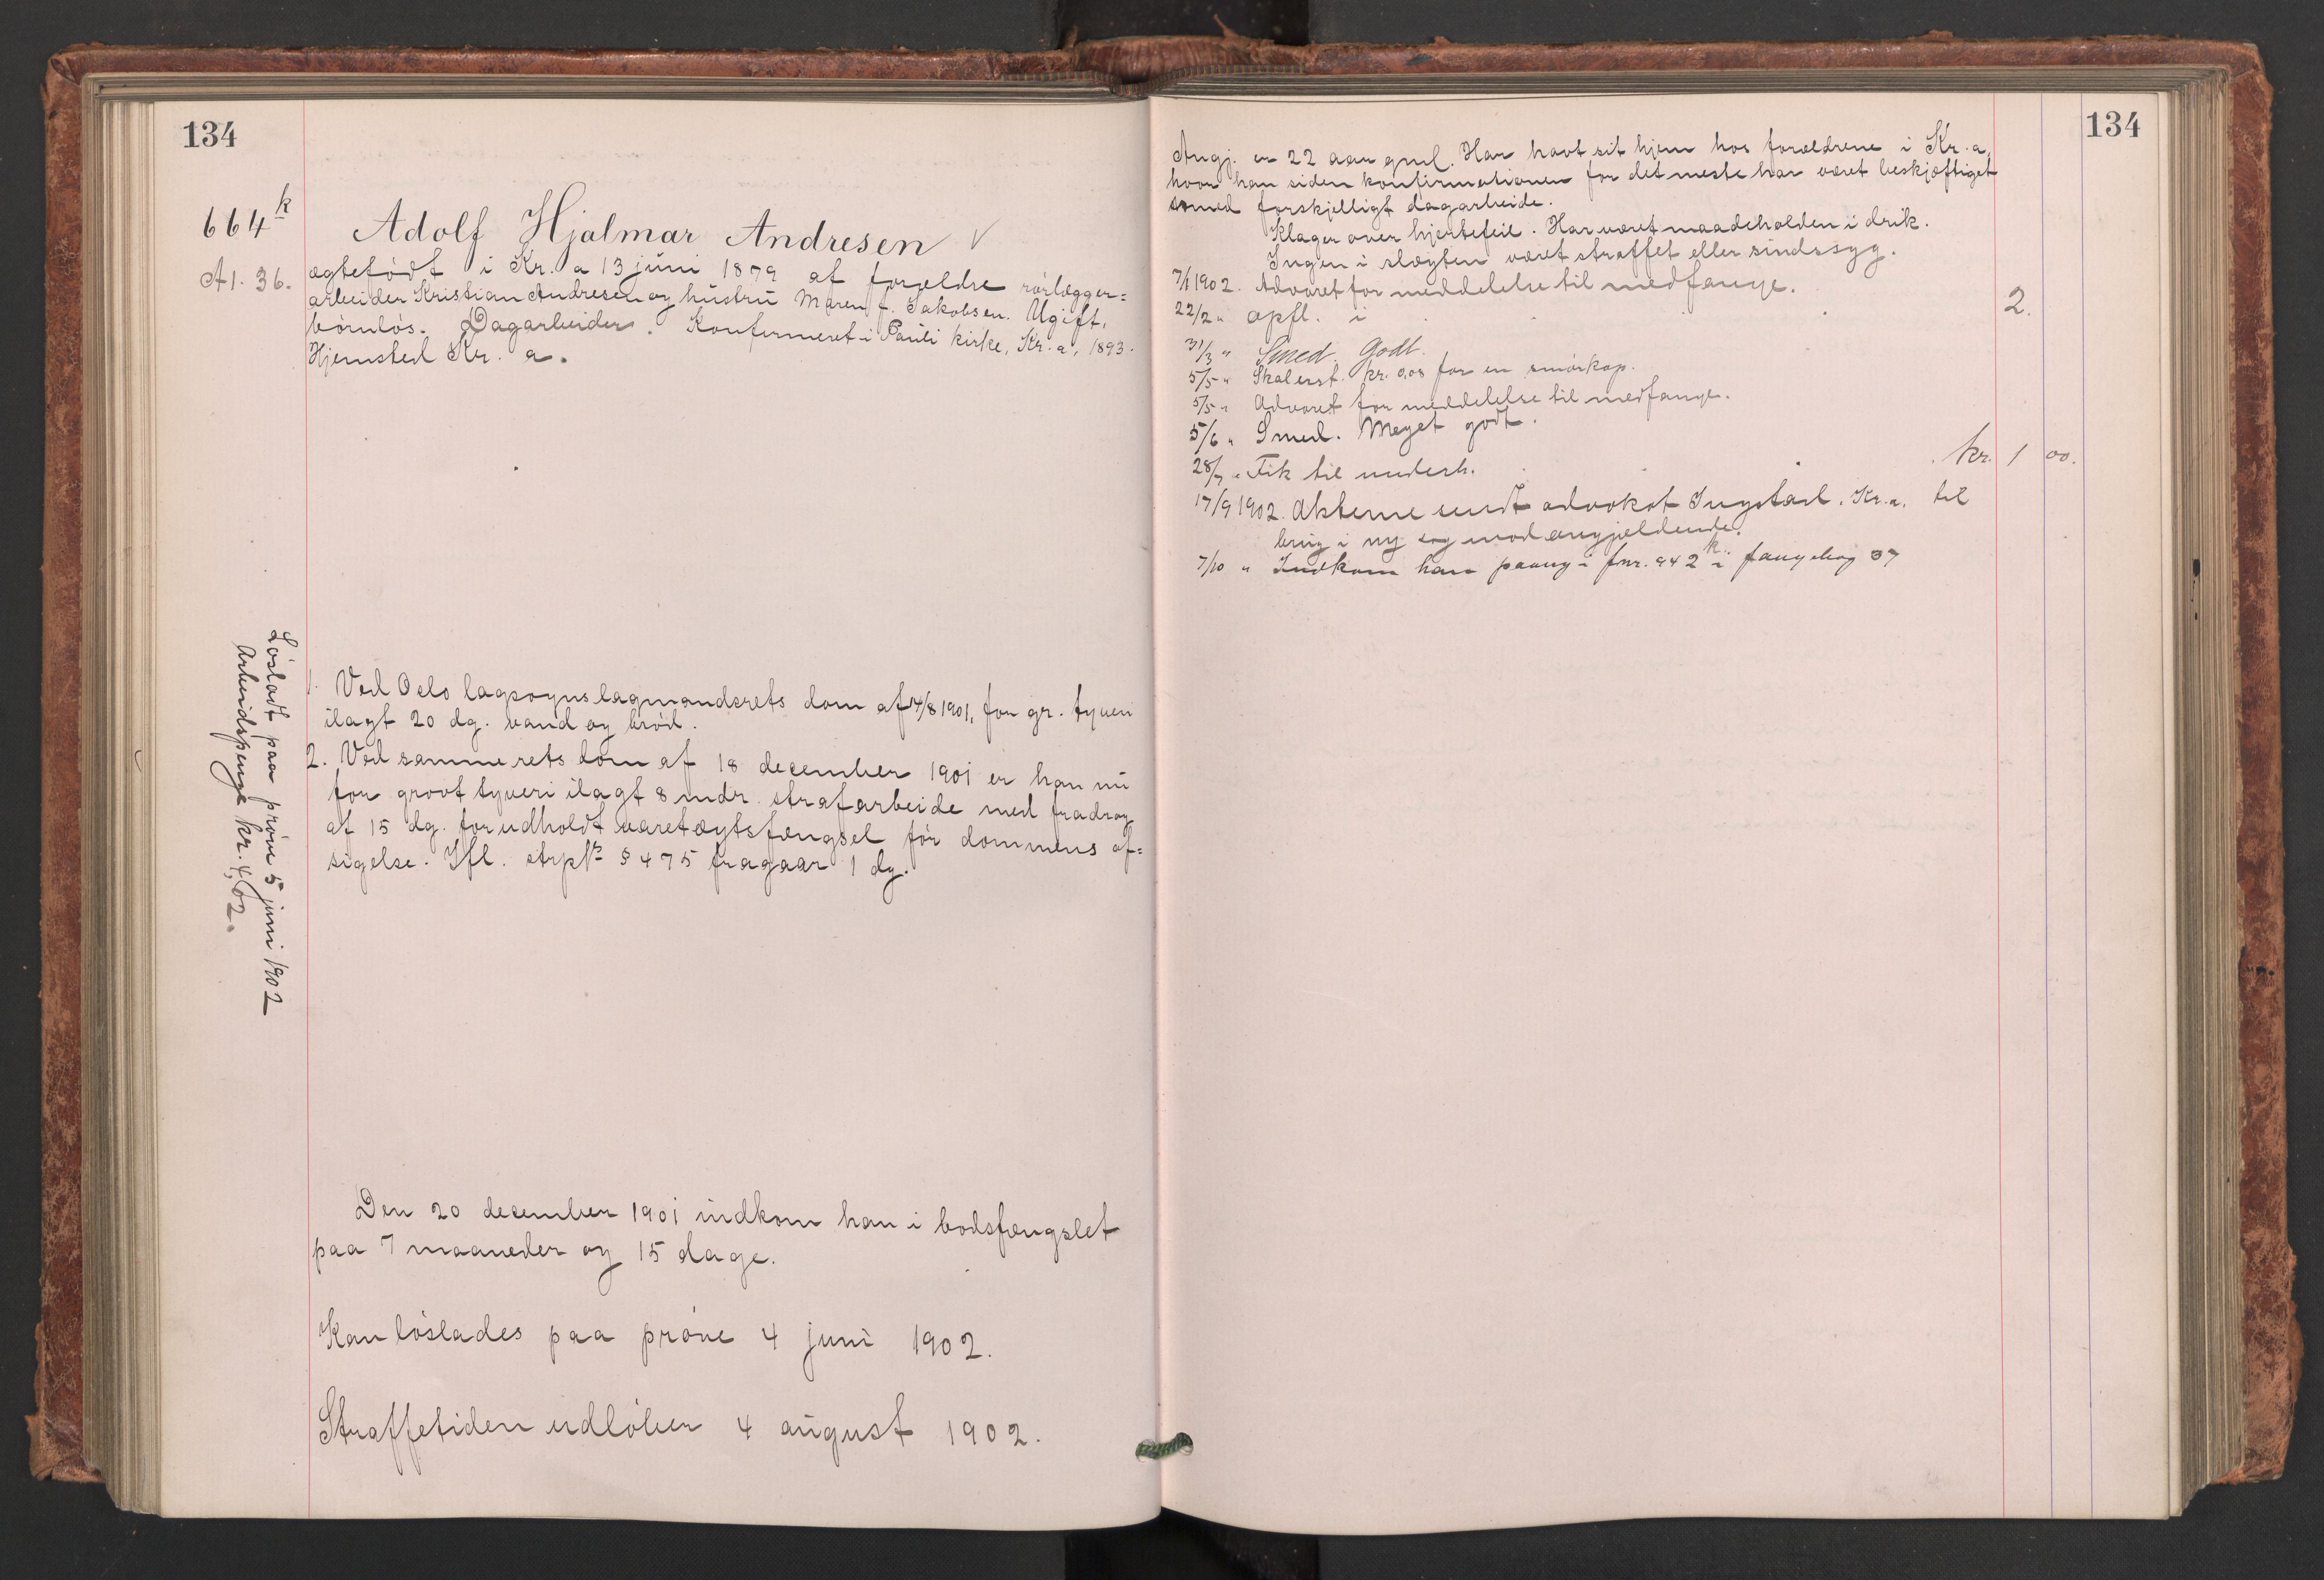 134
664 k
A1. 36.
Adolf Hjalmar Andresen √
ægtefødt i Kr.a 13 juni 1879 af forældre rørlægger=
arbeider Kristian Andresen og hustru Maren f. Jakobsen. Ugift,
børnløs. Dagarbeider. Konfirmeret i Pauli kirke, Kr.a, 1893.
Hjemsted Kr. a.
Løsladt paa prøve 5 juni 1902
Arbeidspenge kr. 4,02.
1. Ved Oslo lagsogns lagmandsrets dom af 14/8 1901, for gr. tyveri
ilagt 20 dg. vand og brød.
2. Ved samme rets dom af 18 december 1901 er han nu
for grovt tyveri ilagt 8 mdr. strafarbeide med fradrag
af 15 dg. for udholdt varetægtsfængsel før dommens af=
sigelse. Ifl. strpls § 475 fragaar 1 dg.
Den 20 december 1901 indkom han i bodsfængslet
paa 7 maaneder og 15 dage.
Kan løslades paa prøve 4 juni 1902.
Straffetiden udløber 4 august 1902.
134
Angj. er 22 aar gml. Har havt sit hjem hos forældrene i Kr.a,
hvor han siden konfirmationen for det meste har været beskjæftiget
med forskjelligt dagarbeide.
Klager over hjertefeil. Har været maadeholden i drik.
Ingen i slægten været straffet eller sindssyg.
7/1 1902. Advaret for meddelelse til medfange.
22/2 " opfl. i 2.
31/3 " Smed. Godt.
5/5 " Skal erst. kr. 0,08 for en smørkop.
5/5 " Advaret for meddelelse til medfange.
5/6 " Smed. Meget godt.
28/7 " Fik til underh. kr. 1 00.
17/9 1902. Akterne sendt advokat Ingstad, Kr.a. til
brug i ny sag mod angjældende.
7/10 " Indkom han paany i fnr. 942 k i fangebog 37